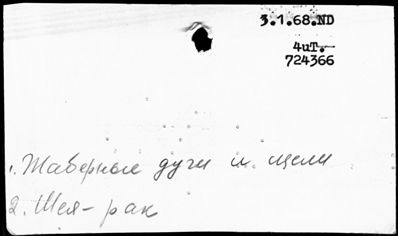 3.1.68.ND
4иТ.
724366
1. Жаберные дуги и щели
2. Шея - рак